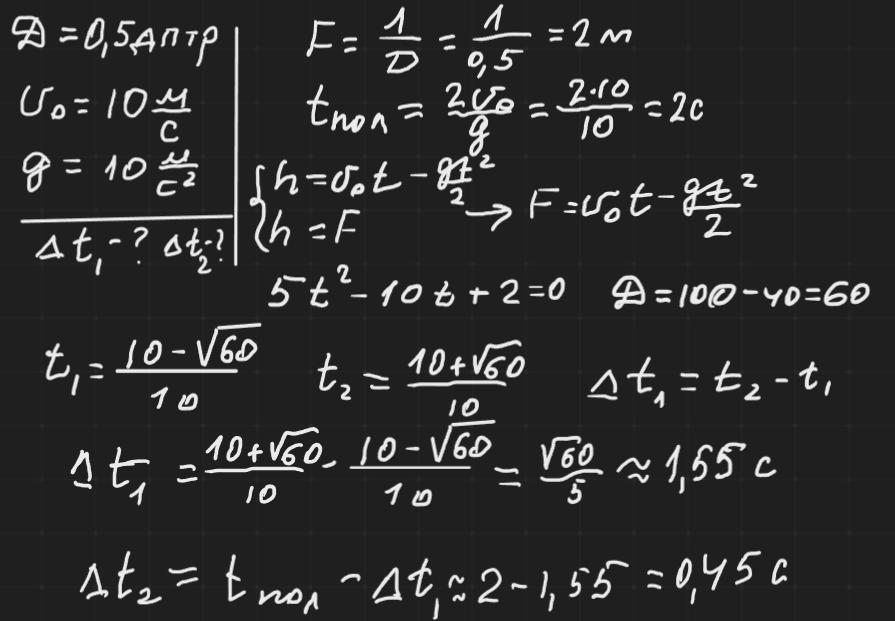 D = 0,5 дптр
υ₀ = 10 м/с
g = 10 м/с²
Δt₁ - ? Δt₂ - ?
F = 1/D = 1/0,5 = 2 м
tпол = 2υ₀/g = 2·10/10 = 2с
{h = υ₀t - gt²/2
{h = F → F = υ₀t - gt²/2
5t² - 10t + 2 = 0 D = 100 - 40 = 60
t₁ = (10 - √60)/10 t₂ = (10 + √60)/10 Δt₁ = t₂ - t₁
Δt₁ = (10 + √60)/10 - (10 - √60)/10 = √60/5 ≈ 1,55 с
Δt₂ = tпол - Δt₁ ≈ 2 - 1,55 = 0,45 с